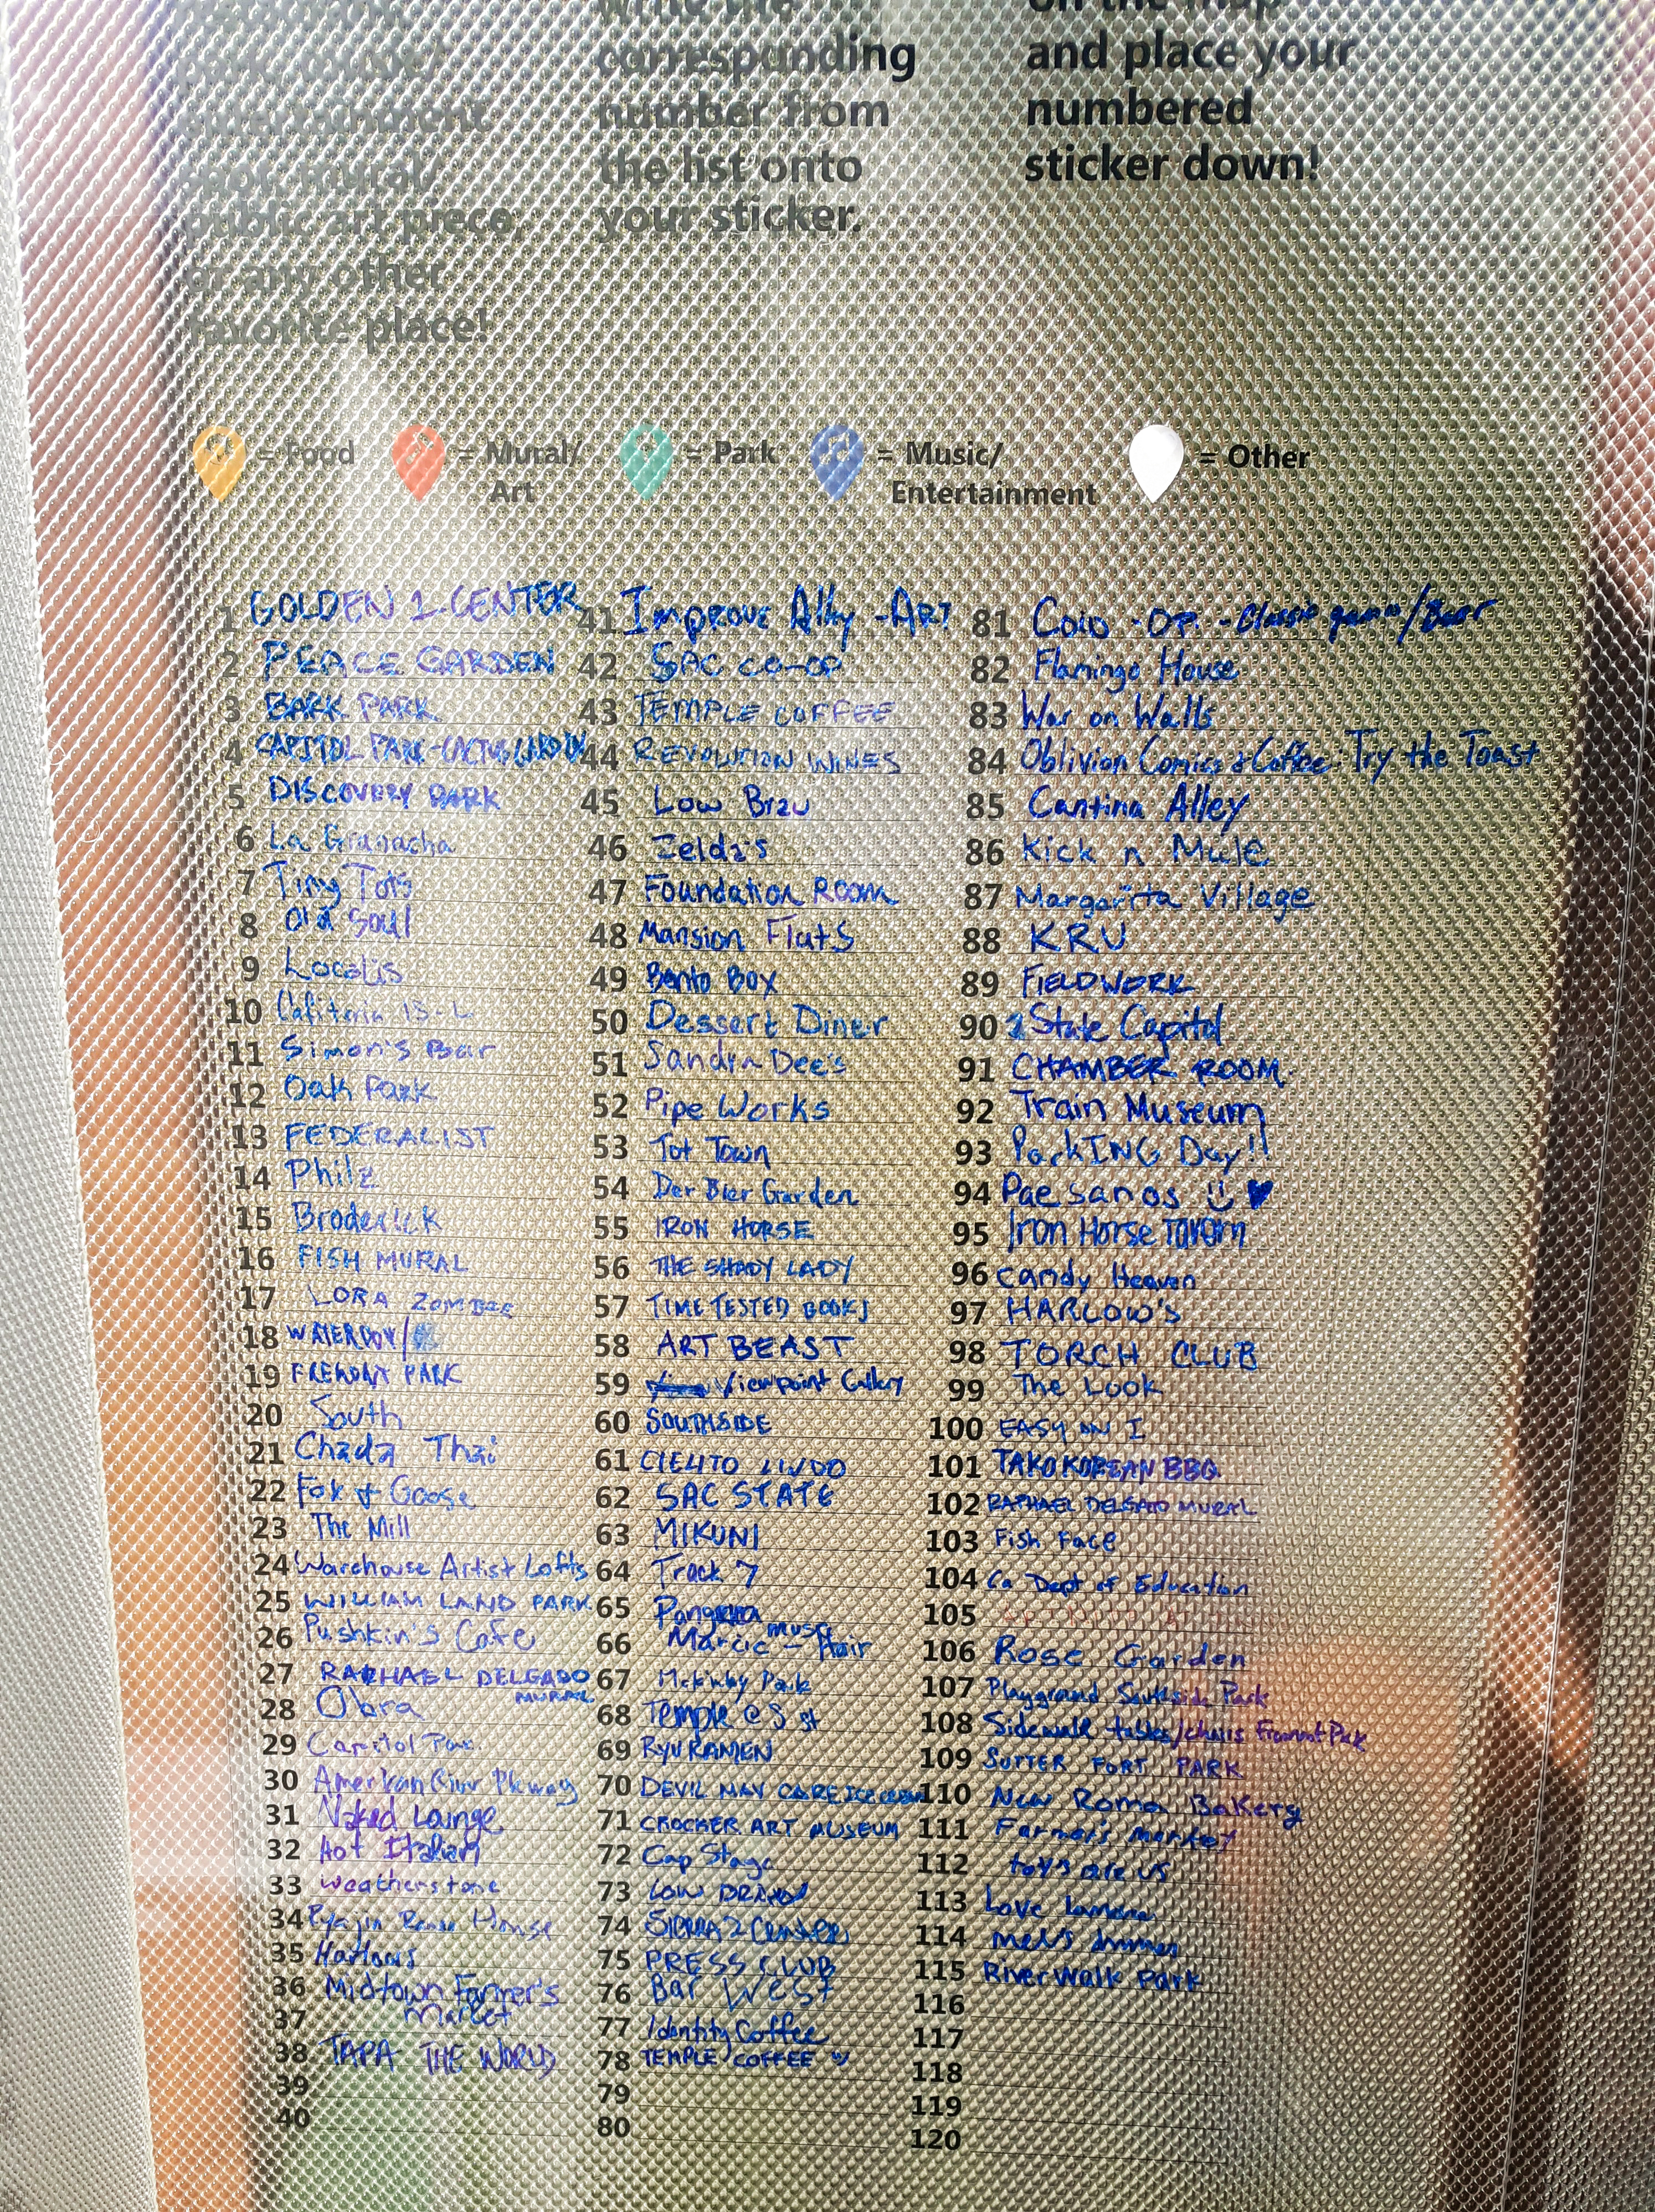 write the
corresponding
number from
the list onto
your sticker.
on the map
and place your
numbered
sticker down!
entertainment
spot, mural/
public art piece,
or any other
favorite place!
= Food
= Mural/
Art
= Park
= Music/
Entertainment
= Other
1 GOLDEN 1 CENTER
2 PEACE GARDEN
3 BARK PARK
4 CAPITOL PARK-CACTUS GARDEN
5 DISCOVERY PARK
6 La Granacha
7 Tiny Tots
8 Old Soul
9 Localis
10 15-L
11 Simon's Bar
12 Oak Park
13 FEDERALIST
14 Philz
15 Broderick
16 FISH MURAL
17 LORA ZOMBIE
18 WATERBOY/
19 FREMONT PARK
20 South
21 Chada Thai
22 Fox & Goose
23 The Mill
24 Warehouse Artist Lofts
25 WILLIAM LAND PARK
26 Pushkin's Cafe
27 RAPHAEL DELGADO
MURAL
28 Obra
29 Capitol Park
30 American River Pkway
31 Naked Lounge
32 Hot Italian
33 weatherstone
34 Ryujin Ramen House
35 Harlows
36 Midtown Farmer's
37 Market
38 TAPA THE WORLD
39
40
41 Improve Alley -ART
42 SAC CO-OP
43 TEMPLE COFFEE
44 REVOLUTION WINES
45 Low Brau
46 Zelda's
47 Foundation Room
48 Mansion Flats
49 Bento Box
50 Dessert Diner
51 Sandra Dee's
52 Pipe Works
53 Tot Town
54 Der Bier Garden
55 IRON HORSE
56 THE SHADY LADY
57 TIME TESTED BOOKS
58 ART BEAST
59 Viewpoint Gallery
60 SOUTHSIDE
61 CIELITO LINDO
62 SAC STATE
63 MIKUNI
64 Track 7
65 Pangaea
66 Marcie - Hair
67 Mckinley Park
68 Temple @ S st
69 RYU RAMEN
70 DEVIL MAY CARE ICE CREAM
71 CROCKER ART MUSEUM
72 Cap Stage
73 LOW BRAU
74 SIERRA 2 Center
75 PRESS CLUB
76 Bar West
77 Identity Coffee
78 TEMPLE COFFEE
79
80
81 Coin-Op - Classic games/Beer
82 Flamingo House
83 War on Walls
84 Oblivion Comics & Coffee. Try the Toast
85 Cantina Alley
86 Kick n Mule
87 Margarita Village
88 KRU
89 FIELDWORK
90 State Capitol
91 CHAMBER ROOM
92 Train Museum
93 ParkING Day!!
94 Paesanos
95 Iron Horse Tavern
96 Candy Heaven
97 HARLOW'S
98 TORCH CLUB
99 The Look
100 EASY ON I
101 TAKO KOREAN BBQ
102 RAPHAEL DELGADO MURAL
103 Fish Face
104 Ca Dept of Education
105
106 Rose Garden
107 Playground Southside Park
108 Sidewalk tables/chairs Fremont Park
109 SUTTER FORT PARK
110 New Roma Bakery
111 Farmer's Market
112 toys are us
113 Love
114 mel's
115 River Walk Park
116
117
118
119
120